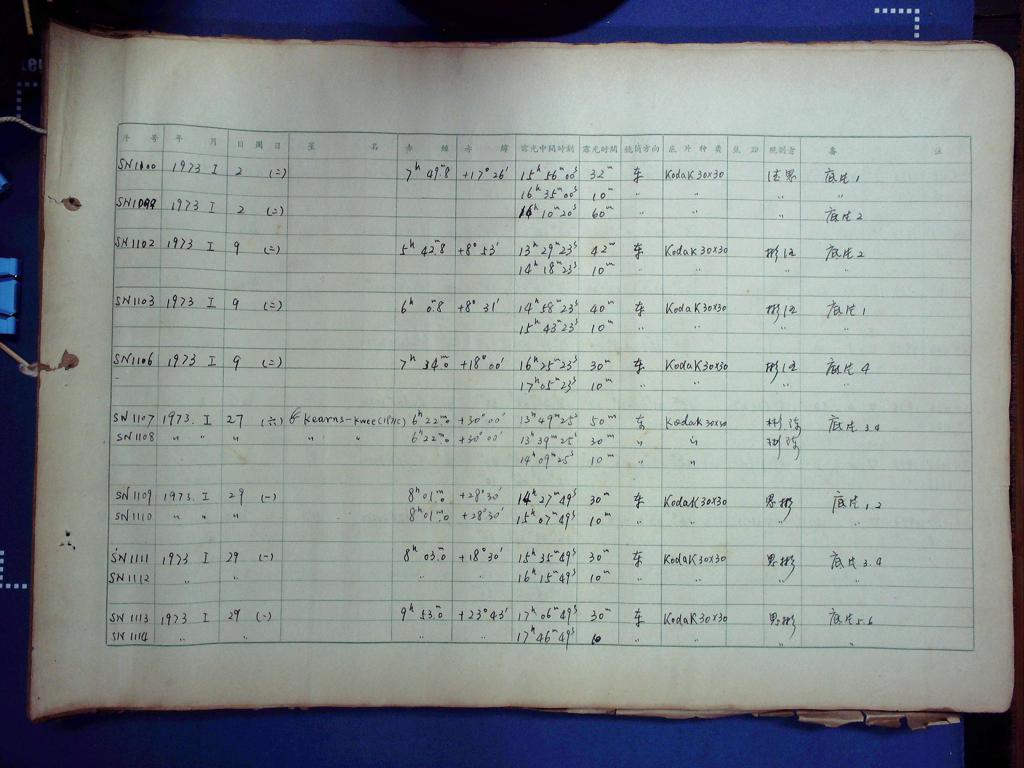 序 号 年 月 日 週 日 星 名 赤 經 赤 緯 露光中間時刻 露光時間 鏡筒方向 底 片 种 类 觀測者 备 註
SN1100 1973 I 2 (二) 7ʰ 49ᵐ.8 +17° 26′ 15ʰ 56ᵐ 00ˢ 32ᵐ 东 Kodak 30×30 底片 1
16ʰ 35ᵐ 00ˢ 10ᵐ 〃 〃 〃 〃
SN1099 1973 I 2 (二) 14ʰ 10ᵐ 20ˢ 60ᵐ 〃 〃 〃 底片 2
SN1102 1973 I 9 (二) 5ʰ 42ᵐ.8 +8° 53′ 13ʰ 29ᵐ 23ˢ 42ᵐ 东 Kodak 30×30 底片 2
14ʰ 18ᵐ 23ˢ 10ᵐ 〃 〃 〃 〃
SN1103 1973 I 9 (二) 6ʰ 0ᵐ.8 +8° 31′ 14ʰ 58ᵐ 23ˢ 40ᵐ 东 Kodak 30×30 底片 1
15ʰ 43ᵐ 23ˢ 10ᵐ 〃 〃 〃 〃
SN1106 1973 I 9 (二) 7ʰ 34ᵐ.0 +18° 00′ 16ʰ 25ᵐ 23ˢ 30ᵐ 东 Kodak 30×30 底片 4
17ʰ 05ᵐ 23ˢ 10ᵐ 〃 〃 〃 〃
SN1107 1973. I 27 (六) Kearns-Kwee 6ʰ 22ᵐ.0 +30° 00′ 13ʰ 49ᵐ 25ˢ 50ᵐ 东 Kodak 30×30 底片 3.4
SN1108 〃 〃 〃 〃 〃 6ʰ 22ᵐ.0 +30° 00′ 13ʰ 39ᵐ 25ˢ 30ᵐ 〃 〃
14ʰ 09ᵐ 25ˢ 10ᵐ 〃 〃
SN1109 1973. I 29 (一) 8ʰ 01ᵐ.0 +28° 30′ 14ʰ 27ᵐ 49ˢ 30ᵐ 东 Kodak 30×30 思彬 底片 1.2
SN1110 〃 〃 〃 8ʰ 01ᵐ.0 +28° 30′ 15ʰ 07ᵐ 49ˢ 10ᵐ 〃 〃 〃 〃
SN1111 1973 I 29 (一) 8ʰ 03ᵐ.0 +18° 30′ 15ʰ 35ᵐ 49ˢ 30ᵐ 东 Kodak 30×30 思彬 底片 3.4
SN1112 〃 〃 〃 〃 16ʰ 15ᵐ 49ˢ 10ᵐ 〃 〃 〃 〃
SN1113 1973 I 29 (一) 9ʰ 53ᵐ.0 +23° 43′ 17ʰ 06ᵐ 49ˢ 30ᵐ 东 Kodak 30×30 思彬 底片 5.6
SN1114 〃 〃 〃 〃 17ʰ 46ᵐ 49ˢ 10 〃 〃 〃 〃